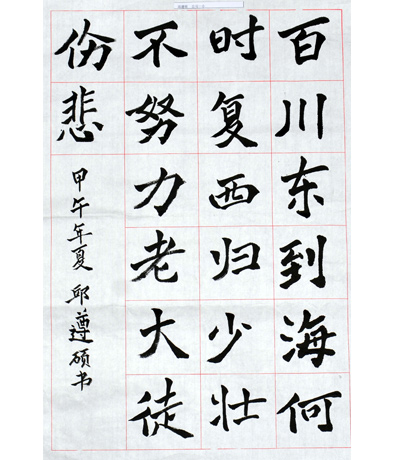 百川东到海何
时复西归少壮
不努力老大徒
伤悲
甲午年夏 邱遵硕书